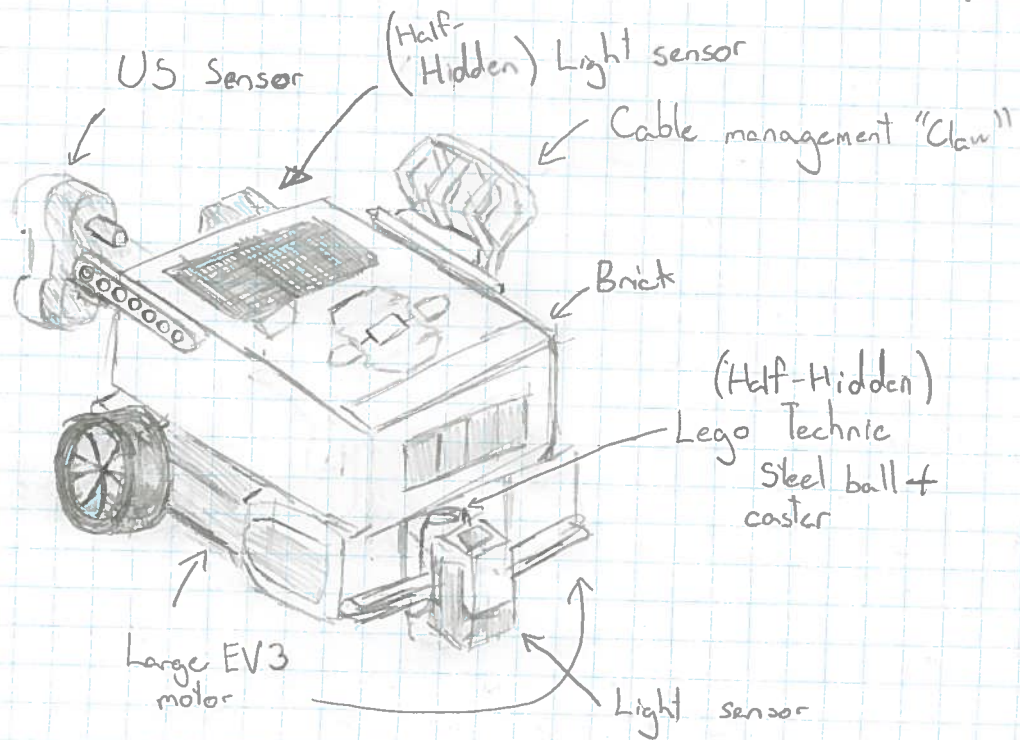 US Sensor
(Half-
Hidden) Light sensor
Cable management "Claw"
Brick
(Half-Hidden)
Lego Technic
Steel ball +
caster
Large EV3
motor
Light sensor